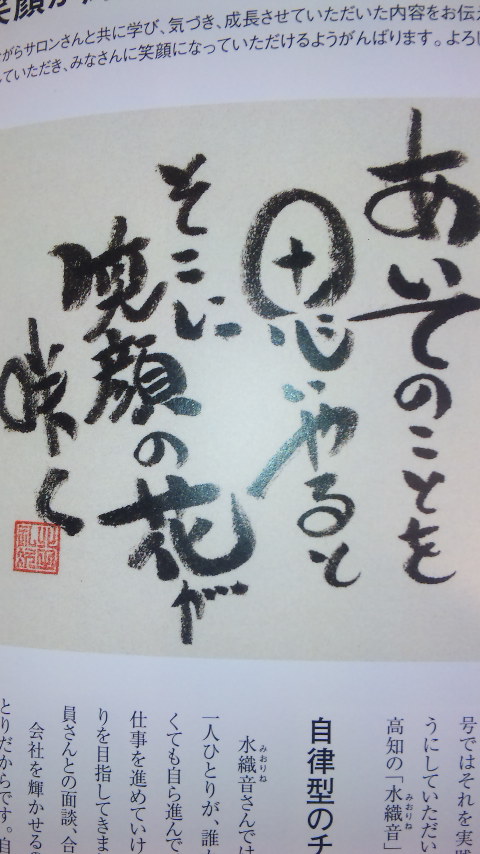 がらサロンさんと共に学び、気づき、成長させていただいた内容をお伝え
していただき、みなさんに笑顔になっていただけるようがんばります。よろし
あいてのことを
思いやると
そこに
笑顔の花が
咲く
号ではそれを実践
うにしていただい
高知の「水織音」
みおりね
自律型のチ
水織音さんでは
みおりね
一人ひとりが、誰か
くても自ら進んで
仕事を進めていけ
りを目指してきま
員さんとの面談、合
会社を輝かせるの
とりだからです。自